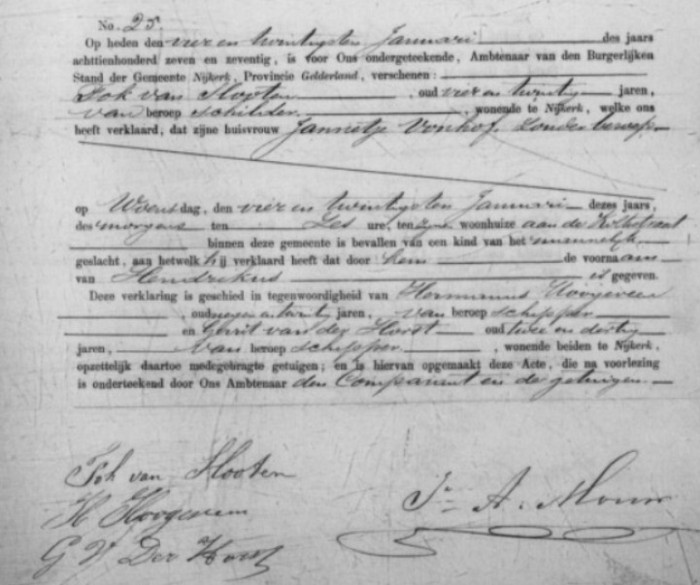 No. 25
Op heden den vier en twintigsten Januari des jaars
achttienhonderd zeven en zeventig, is voor Ons ondergeteekende, Ambtenaar van den Burgerlijken
Stand der Gemeente Nijkerk, Provincie Gelderland, verschenen:
van Slooten, oud vier en twintig jaren,
van beroep schilder, wonende te Nijkerk, welke ons
heeft verklaard, dat zijne huisvrouw Jannetje Vonhof, zonder beroep
op Woensdag, den vier en twintigsten Januari dezes jaars,
des morgens ten zes ure, ten zijne woonhuize aan de
binnen deze gemeente is bevallen van een kind van het mannelijk
geslacht, aan hetwelk hij verklaard heeft dat door hem de voornaam
van Hendrikus is gegeven.
Deze verklaring is geschied in tegenwoordigheid van Hermanus Hoogeveen
, oud negen en twintig jaren, van beroep schipper
en Gerrit van der Horst oud twee en dertig
jaren, van beroep schipper, wonende beiden te Nijkerk,
opzettelijk daartoe medegebragte getuigen; en is hiervan opgemaakt deze Acte, die na voorlezing
is onderteekend door Ons Ambtenaar den Comparant en de getuigen.
van Slooten
H Hoogeveen
G V Der Horst